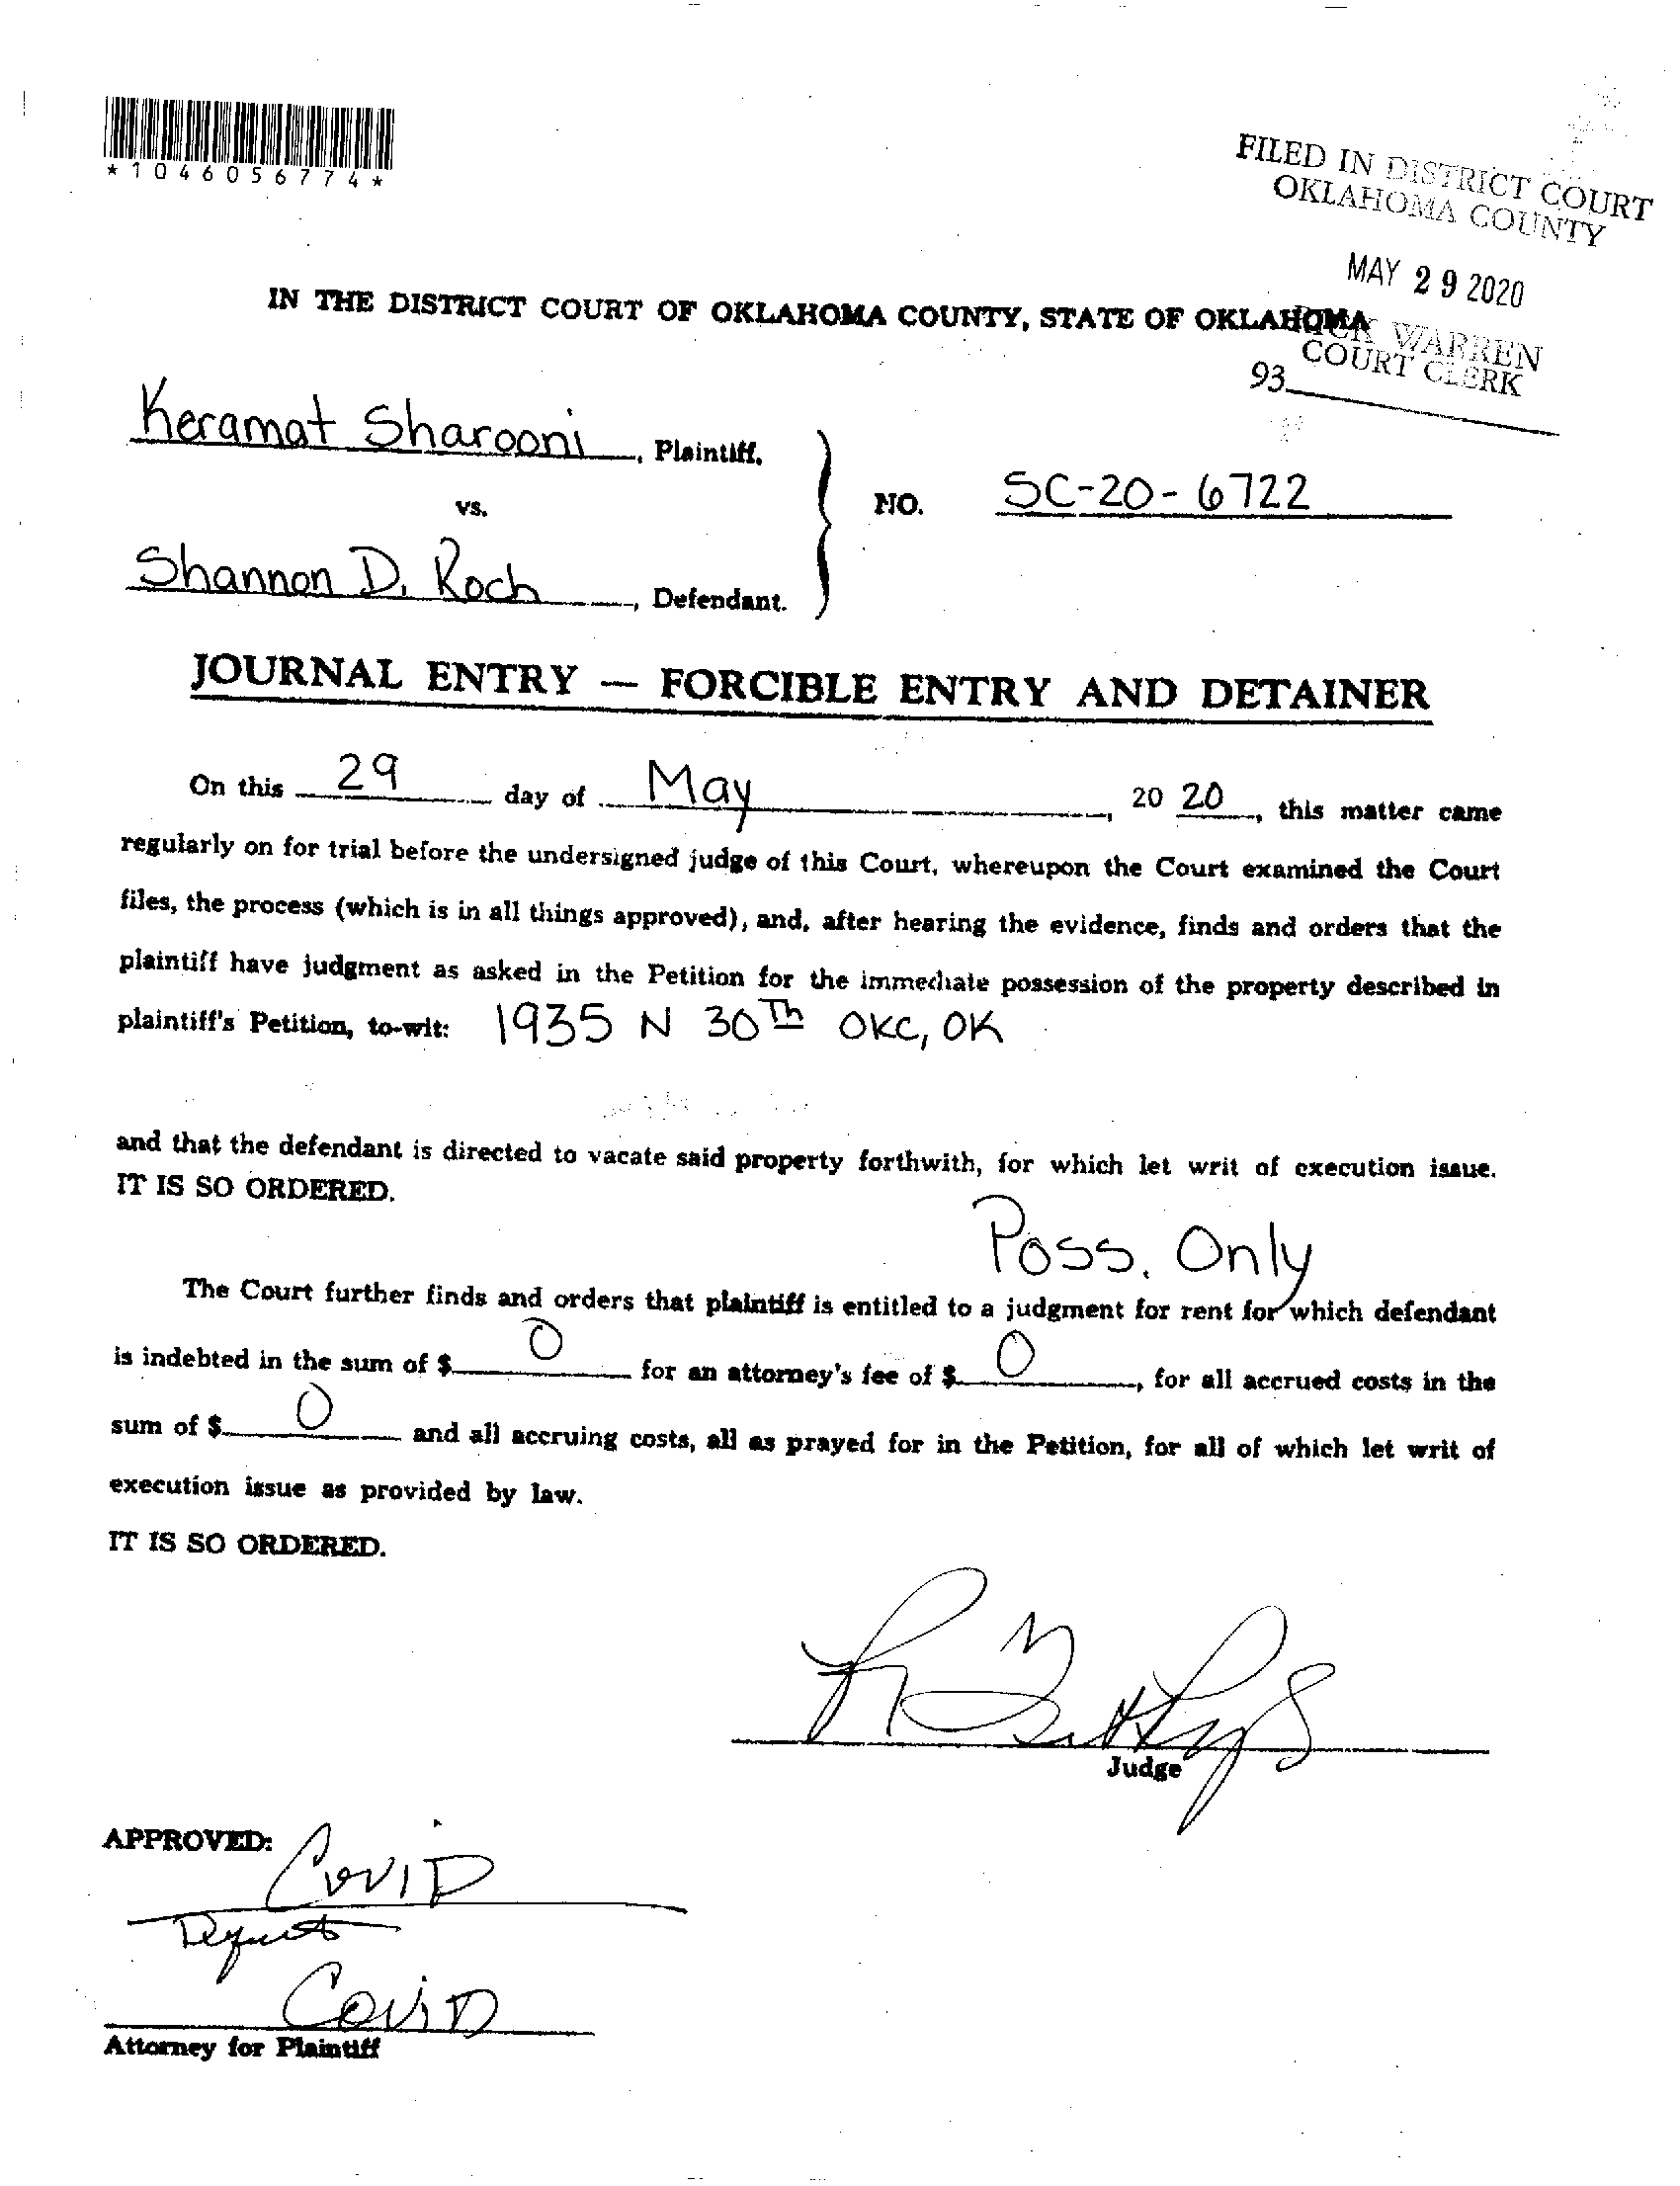 *1046056774*
FILED IN DISTRICT COURT
OKLAHOMA COUNTY
MAY 29 2020
IN THE DISTRICT COURT OF OKLAHOMA COUNTY, STATE OF OKLAHOMA
WARREN
COURT CLERK
93
Keramat Sharooni, Plaintiff,
vs.
NO. SC-20-6722
Shannon D. Roch, Defendant.
JOURNAL ENTRY — FORCIBLE ENTRY AND DETAINER
On this 29 day of May, 20 20, this matter came
regularly on for trial before the undersigned judge of this Court, whereupon the Court examined the Court
files, the process (which is in all things approved), and, after hearing the evidence, finds and orders that the
plaintiff have judgment as asked in the Petition for the immediate possession of the property described in
plaintiff's Petition, to-wit: 1935 N 30Th OKC, OK
and that the defendant is directed to vacate said property forthwith, for which let writ of execution issue.
IT IS SO ORDERED.
Poss. Only
The Court further finds and orders that plaintiff is entitled to a judgment for rent for which defendant
is indebted in the sum of $ 0 for an attorney's fee of $ 0, for all accrued costs in the
sum of $ 0 and all accruing costs, all as prayed for in the Petition, for all of which let writ of
execution issue as provided by law.
IT IS SO ORDERED.
Judge
APPROVED:
Covid
Covid
Attorney for Plaintiff